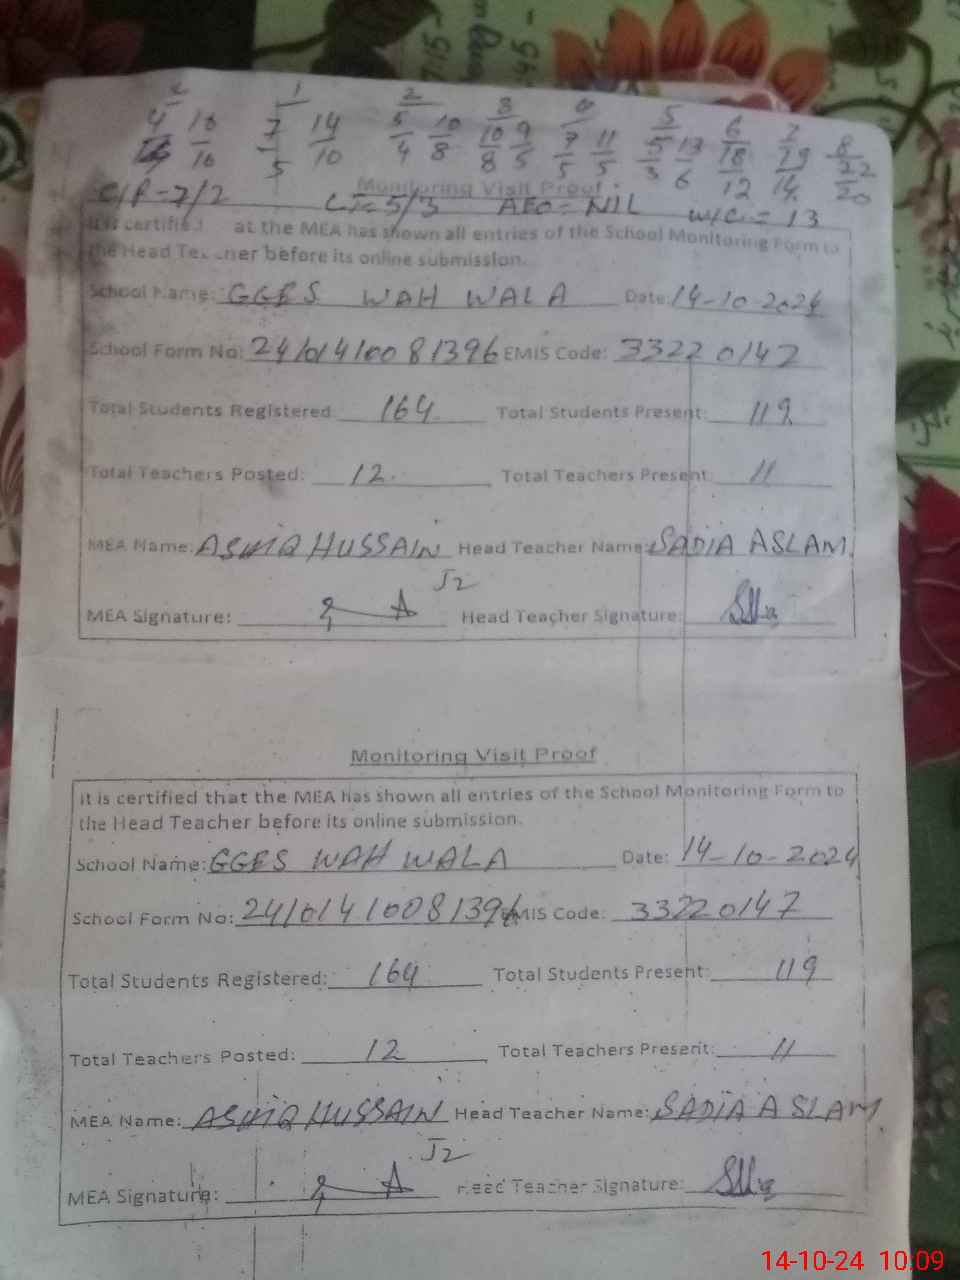 1 2 3 5 6 7 8
7 14 5 10 10 9 7 11 5 13 18 19 22
16 5 10 4 8 8 5 5 5 3 6 12 14 20
C/P-7/2 5/3 AEO=NIL W/C=13
Monitoring Visit Proof
It is certified at the MEA has shown all entries of the School Monitoring Form to
the Head before its online submission.
School Name: GGES WAH WALA Date: 14-10-2024
School Form No: 24101410081396 EMIS Code: 33220147
Total Students Registered 164 Total Students Present: 119
Total Teachers Posted: 12 Total Teachers Present: 11
MEA Name: ASHIQ HUSSAIN Head Teacher Name: SADIA ASLAM
J2
MEA Signature: Head Teacher Signature:
Monitoring Visit Proof
It is certified that the MEA has shown all entries of the School Monitoring Form to
the Head Teacher before its online submission.
School Name: GGES WAH WALA Date: 14-10-2024
School Form No: 24101410081396 EMIS Code: 33220147
Total Students Registered: 164 Total Students Present: 119
Total Teachers Posted: 12 Total Teachers Present: 11
MEA Name: ASHIQ HUSSAIN Head Teacher Name: SADIA ASLAM
J2
MEA Signature: Head Teacher Signature:
14-10-24 10:09